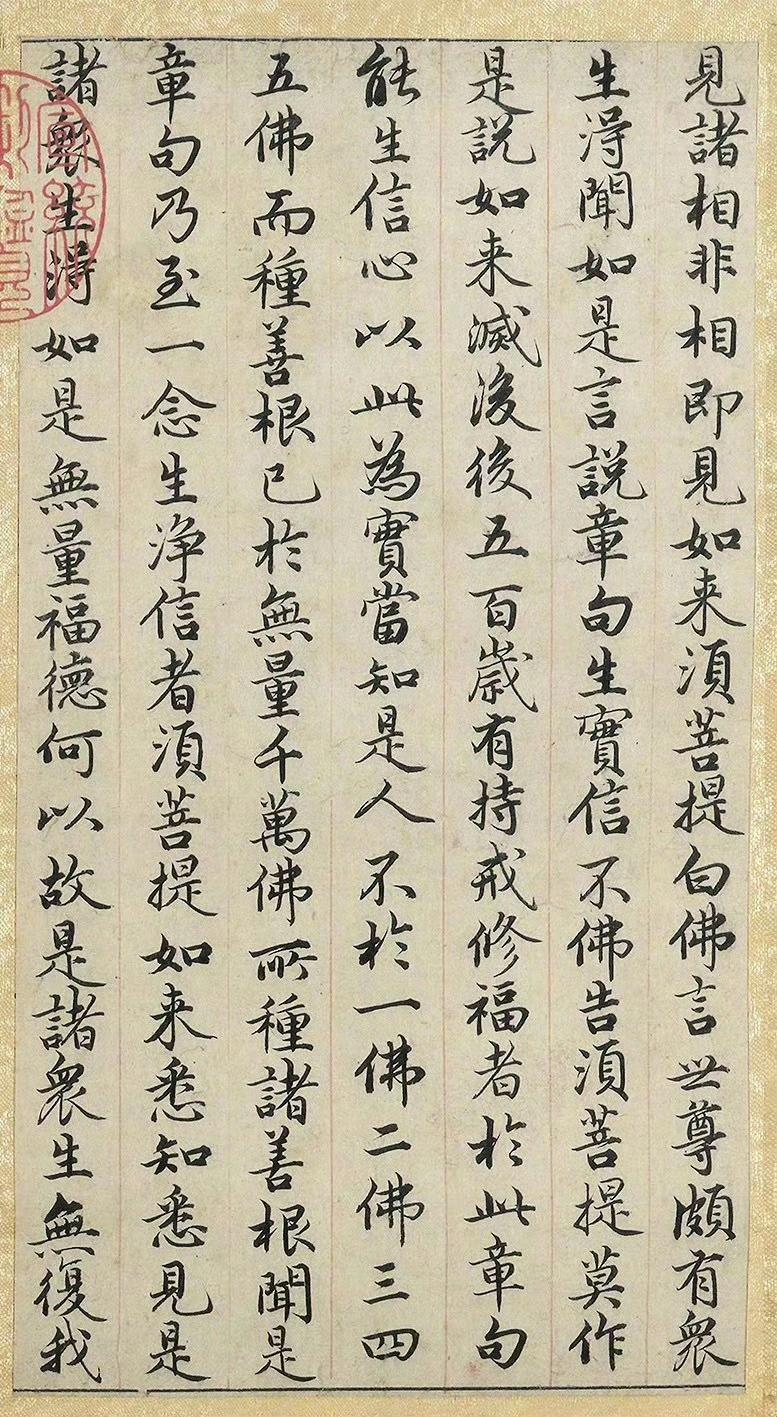 見諸相非相即見如来湏菩提白佛言世尊頗有衆
生淂聞如是言説章句生實信不佛告湏菩提莫作
是説如来滅後後五百歲有持戒修福者於此章句
能生信心以此為實當知是人不於一佛二佛三四
五佛而種善根已於無量千萬佛所種諸善根聞是
章句乃至一念生淨信者湏菩提如来悉知悉見是
諸衆生淂如是無量福德何以故是諸衆生無復我